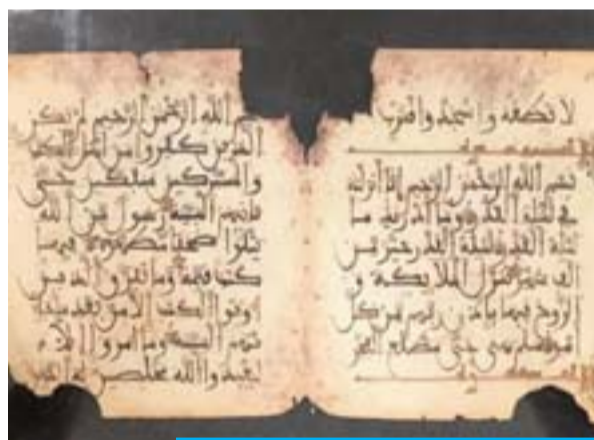 لا تطعه واسجد واقترب
بسم الله الرحمن الرحيم انا انزلنه
في ليلة القدر وما ادريك ما
ليلة القدر ليلة القدر خير من
الف شهر تنزل الملايكة و
الروح فيها باذن ربهم من كل
امر سلم هي حتى مطلع الفجر
الله الرحمن الرحيم لم يكن
الذين كفروا من اهل الكتب
والمشركين منفكين حتى
تاتيهم البينة رسول من الله
يتلوا صحفا مطهرة فيها
كتب قيمة وما تفرق الذين
اوتوا الكتب الا من بعد ما جا
تهم البينة وما امروا الا
ليعبدوا الله مخلصين له الدين